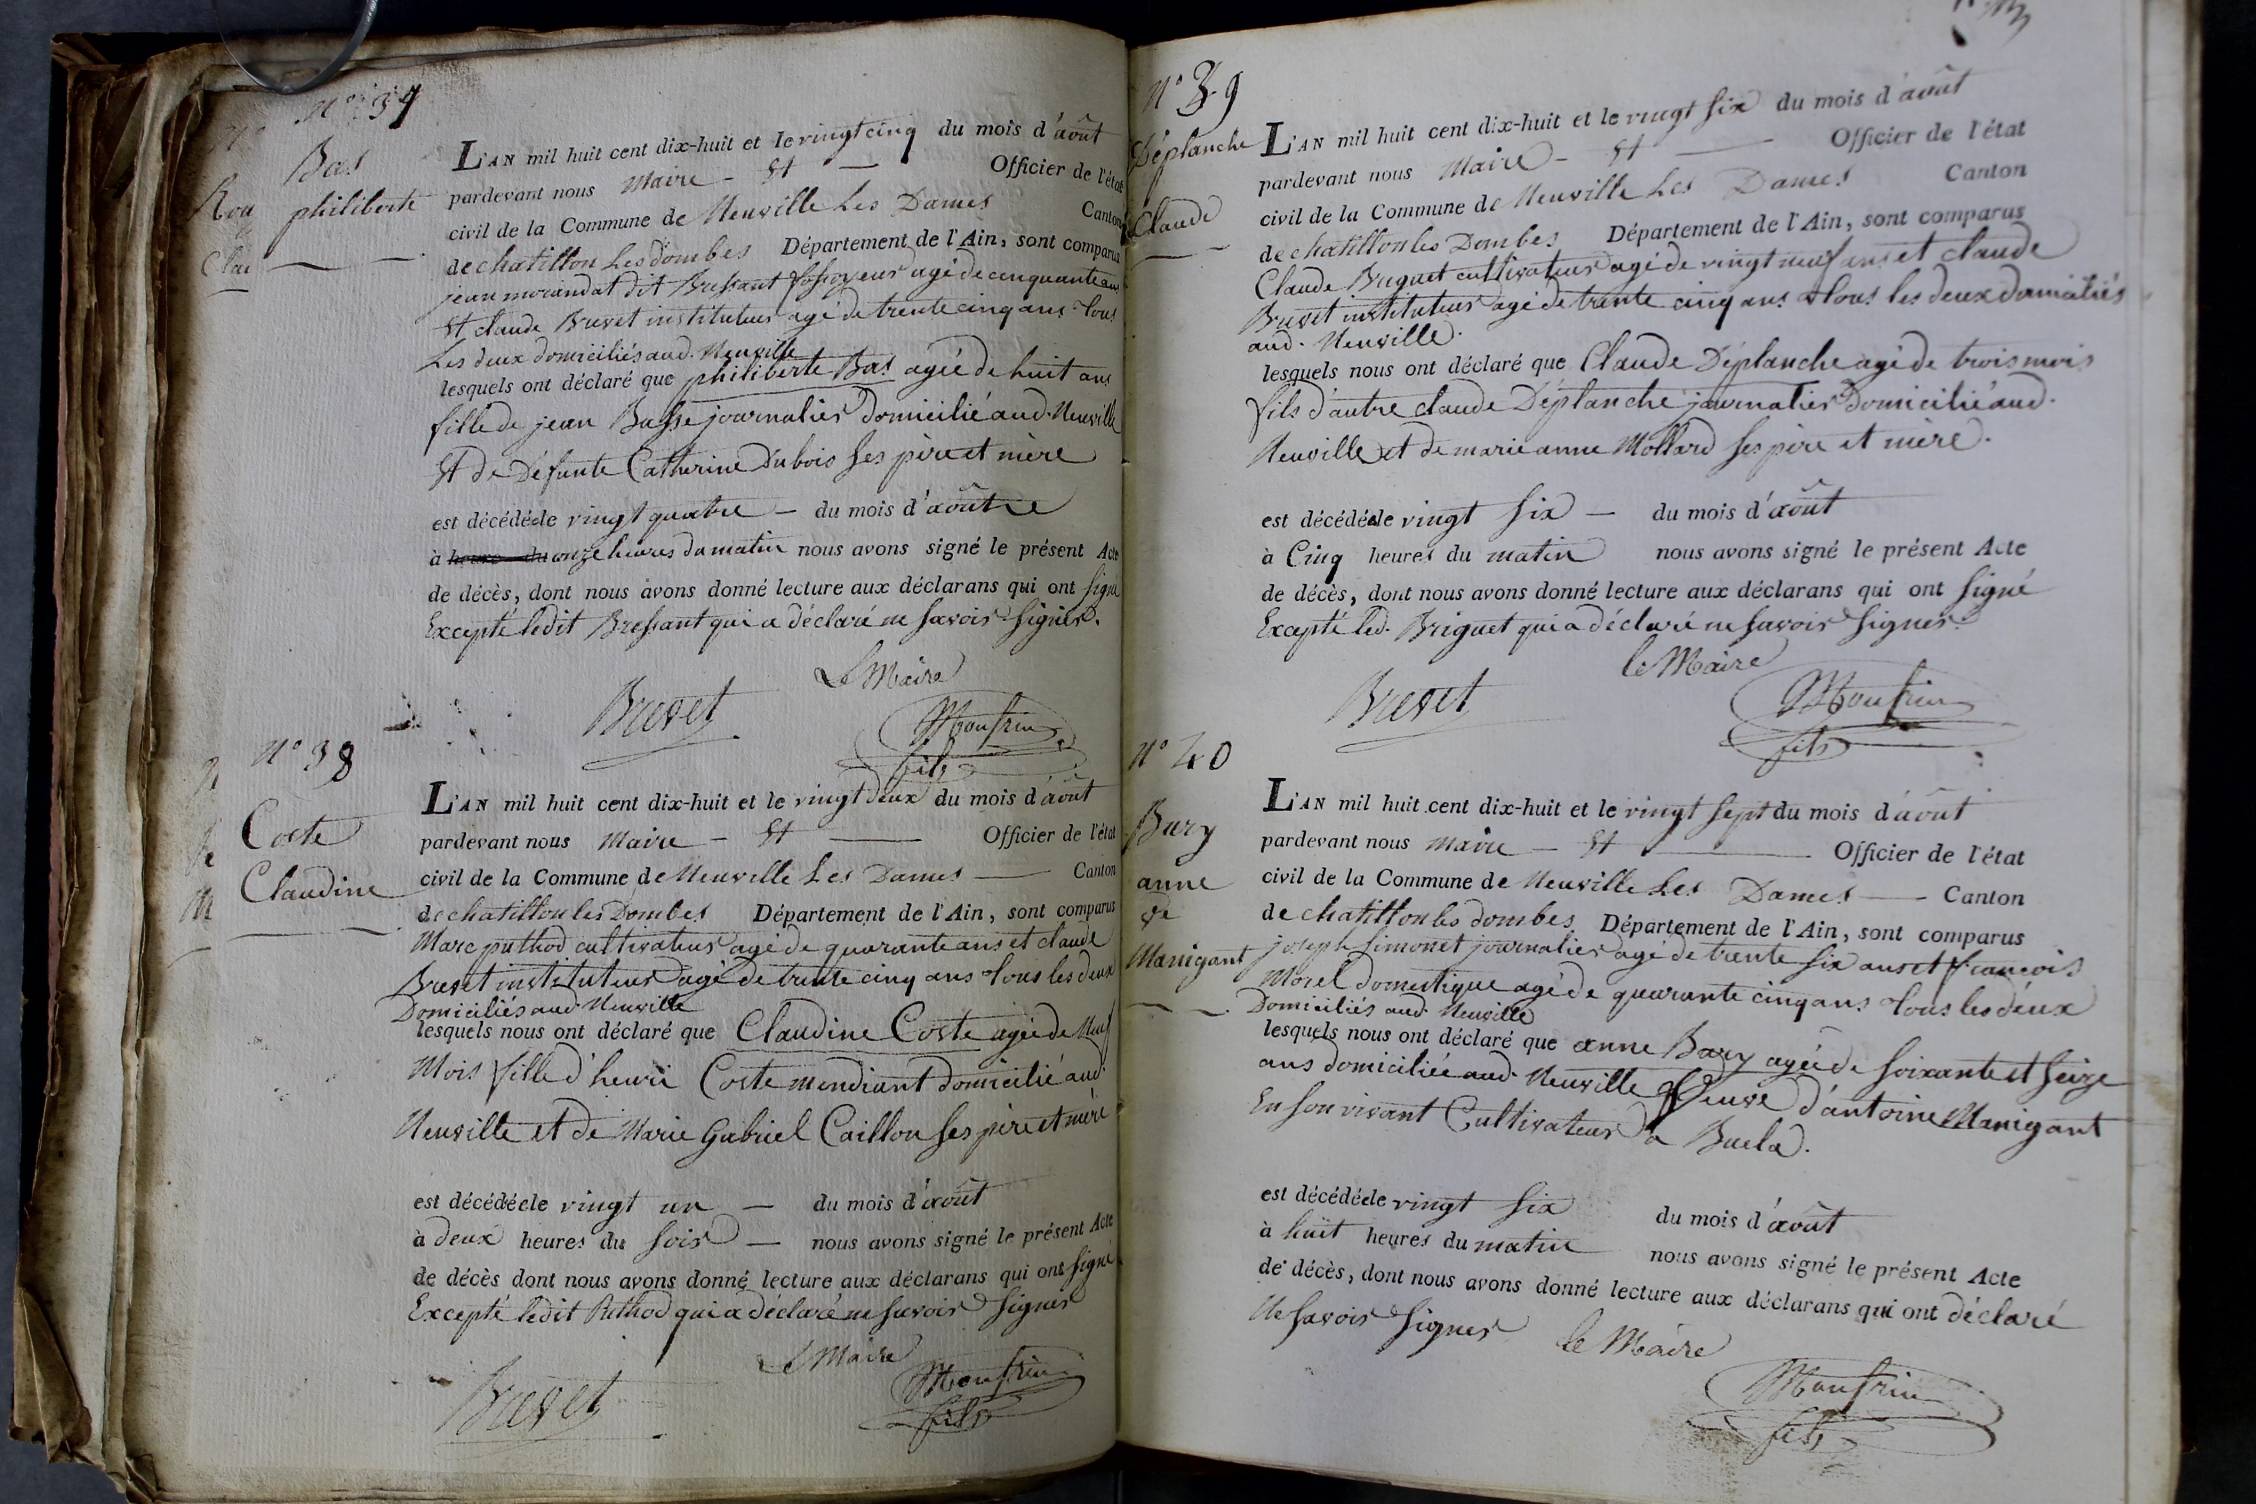 N° 37
Bas
philiberte
L'AN mil huit cent dix-huit et le vingt cinq du mois d'août
pardevant nous Maire - Et — Officier de l'état
civil de la Commune de Neuville Les Dames Canton
de chatillon Les dombes Département de l'Ain, sont comparus
jean morandat dit Bressant fossoyeur agé de cinquante ans
Et claude Brevet instituteur agé de trente cinq ans Tous
Les deux domiciliés aud. Neuville
lesquels ont déclaré que philiberte Bas agée de huit ans
fille de jean Basse journalier domicilié aud. Neuville
Et de Défunte Catherine Dubois Ses père et mère
est décédée le vingt quatre — du mois d'août
à heure du onze heures du matin nous avons signé le présent Acte
de décès, dont nous avons donné lecture aux déclarans qui ont signé
Excepté ledit Bressant qui a déclaré ne Savoir Signer.
Le Maire
Brevet
Monfrin
fils
N° 38
Coste
Claudine
L'AN mil huit cent dix-huit et le vingt deux du mois d'août
pardevant nous Maire - Et — Officier de l'état
civil de la Commune de Neuville Les Dames — Canton
de chatillon les Dombes Département de l'Ain, sont comparus
Marc puthod cultivateur agé de quarante ans et claude
Brevet instituteur agé de trente cinq ans Tous les deux
Domiciliés aud. Neuville
lesquels nous ont déclaré que Claudine Coste agée de Neuf
Mois fille d'henri Coste mendiant domicilié aud.
Neuville et de Marie Gabriel Caillon Ses père et mère
est décédée le vingt un — du mois d'août
à deux heures du Soir — nous avons signé le présent Acte
de décès dont nous avons donné lecture aux déclarans qui ont signé
Excepté ledit Puthod qui a déclaré ne Savoir Signer
Le Maire
Brevet
Monfrin
fils
N° 39
Déplanche
Claude
L'AN mil huit cent dix-huit et le vingt Six du mois d'août
pardevant nous Maire - Et — Officier de l'état
civil de la Commune de Neuville Les Dames Canton
de chatillon les Dombes Département de l'Ain, sont comparus
Claude Briguet cultivateur agé de vingt neuf ans et claude
Brevet instituteur agé de trente cinq ans Tous les deux domiciliés
aud. Neuville.
lesquels nous ont déclaré que Claude Déplanche agé de trois mois
fils d'autre claude Déplanche journalier Domicilié aud.
Neuville et de marie anne Mollard Ses père et mère.
est décédé le vingt Six — du mois d'août
à Cinq heures du matin nous avons signé le présent Acte
de décès, dont nous avons donné lecture aux déclarans qui ont Signé
Excepté led. Briguet qui a déclaré ne Savoir Signer.
le Maire
Brevet
Monfrin
fils
N° 40
Bury
anne
ve
Manigant
L'AN mil huit cent dix-huit et le vingt Sept du mois d'août
pardevant nous Maire — Et — Officier de l'état
civil de la Commune de Neuville Les Dames — Canton
de chatillon les dombes Département de l'Ain, sont comparus
joseph Simonet journalier agé de trente Six ans et françois
Morel domestique agé de quarante cinq ans Tous les deux
Domiciliés aud. Neuville
lesquels nous ont déclaré que anne Bury agée de Soixante et Seize
ans domiciliée aud. Neuville Veuve d'antoine Manigant
En Son vivant Cultivateur à Buela.
est décédée le vingt Six du mois d'août
à huit heures du matin nous avons signé le présent Acte
de décès, dont nous avons donné lecture aux déclarans qui ont déclaré
Ne Savoir Signer
le Maire
Monfrin
fils